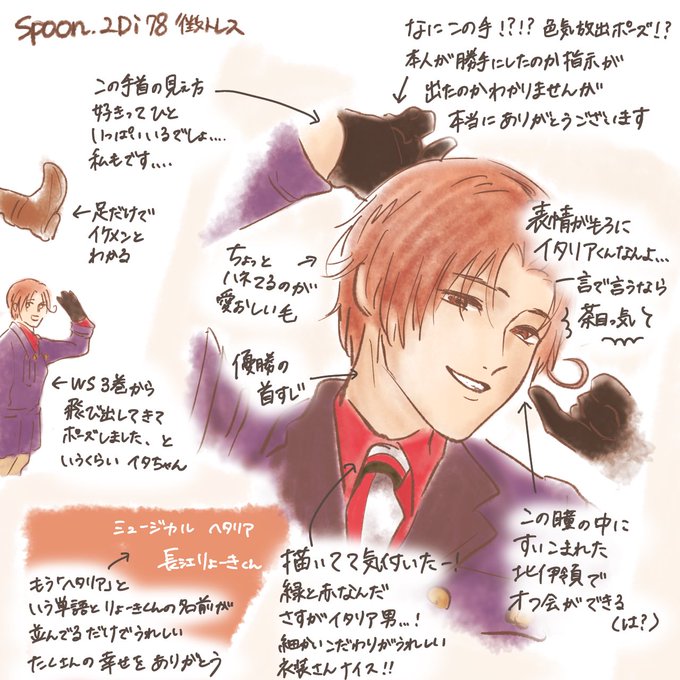 spoon.2Di 78 微トレス
なに この手 !?!? 色気放出ポーズ!?
本人が勝手にしたのか 指示が
出たのか わかりませんが
本当に ありがとうございます
この手首の見え方
好きって ひと
いっぱいいるでしょ....
私もです....
←足だけで
イケメンと
わかる
表情がもろに
イタリアくんなんよ...
一言で言うなら
茶目っ気って
ちょっと
ハネてるのが
愛おしい毛
優勝の
首すじ
←WS3巻から
飛び出してきて
ポーズしました、と
いうくらい イタちゃん
この瞳の中に
すいこまれた
北伊領で
オフ会ができる
(は?)
ミュージカル ヘタリア
長江りょーきくん
もう「ヘタリア」と
いう単語と りょーきくんの名前が
並んでるだけでうれしい
たくさんの 幸せを ありがとう
描いてて気付いたー!
緑と赤なんだ
さすがイタリア男...!
細かいこだわりがうれしい
衣装さん ナイス!!